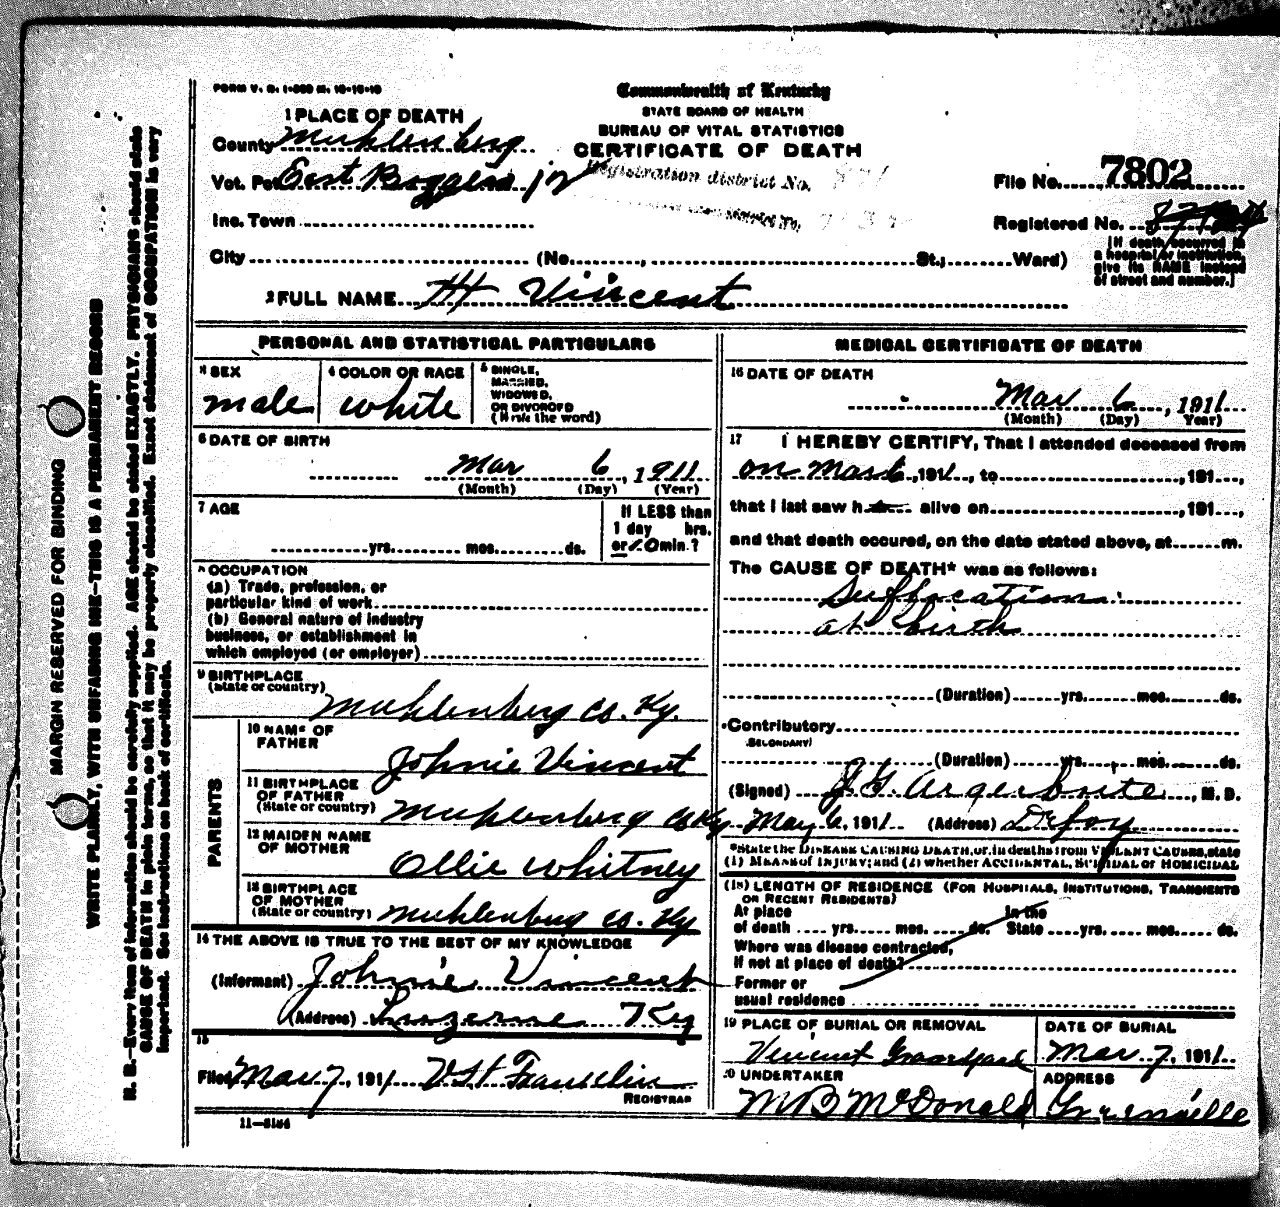 FORM V. S. 1-
Commonwealth of Kentucky
STATE BOARD OF HEALTH
BUREAU OF VITAL STATISTICS
CERTIFICATE OF DEATH
1 PLACE OF DEATH
County Muhlenberg
Vot. Pct East
Registration district No. 871
File No. 7802
Inc. Town
Registered No.
City (No. , St.; Ward)
[If death occurred in
a hospital or institution,
give its NAME instead
of street and number.]
2 FULL NAME Vincent
PERSONAL AND STATISTICAL PARTICULARS
3 SEX
male
4 COLOR OR RACE
white
5 SINGLE,
MARRIED,
WIDOWED,
OR DIVORCED
(Write the word)
6 DATE OF BIRTH
Mar 6, 1911
(Month) (Day) (Year)
7 AGE
yrs. mos. ds.
If LESS than
1 day hrs.
or 10 min.?
8 OCCUPATION
(a) Trade, profession, or
particular kind of work
(b) General nature of industry
business, or establishment in
which employed (or employer)
9 BIRTHPLACE
(State or country)
Muhlenberg Co. Ky.
PARENTS
10 NAME OF
FATHER
Johnie Vincent
11 BIRTHPLACE
OF FATHER
(State or country)
Muhlenberg Co Ky
12 MAIDEN NAME
OF MOTHER
Ollie Whitney
13 BIRTHPLACE
OF MOTHER
(State or country)
Muhlenburg Co. Ky
14 THE ABOVE IS TRUE TO THE BEST OF MY KNOWLEDGE
(Informant) Johnie Vincent
(Address) Luzerne Ky
15
Filed Mar 7, 1911 Franklin
REGISTRAR
11—
MEDICAL CERTIFICATE OF DEATH
16 DATE OF DEATH
Mar 6, 1911
(Month) (Day) Year)
17 I HEREBY CERTIFY, That I attended deceased from
on Mar 6, 1911, to , 191 ,
that I last saw h alive on , 191 ,
and that death occured, on the date stated above, at m.
The CAUSE OF DEATH* was as follows:
Suffocation
at birth
(Duration) yrs. mos. ds.
Contributory
SECONDARY
(Duration) yrs. mos. ds.
(Signed) Argerbrite, M. D.
May 6, 1911 (Address)
*State the DISEASE CAUSING DEATH, or, in deaths from VIOLENT CAUSES, state
(1) MEANS of INJURY; and (2) whether ACCIDENTAL, SUICIDAL or HOMICIDAL
(18) LENGTH OF RESIDENCE (FOR HOSPITALS, INSTITUTIONS, TRANSIENTS
OR RECENT RESIDENTS)
At place In the
of death yrs. mos. ds. State yrs. mos. ds.
Where was disease contracted,
if not at place of death?
Former or
usual residence
19 PLACE OF BURIAL OR REMOVAL
Vincent Graveyard
DATE OF BURIAL
Mar 7, 1911
20 UNDERTAKER
M B McDonald
ADDRESS
Greenville
MARGIN RESERVED FOR BINDING
WRITE PLAINLY, WITH UNFADING INK—THIS IS A PERMANENT RECORD
N. B.—Every item of information should be carefully supplied. AGE should be stated EXACTLY. PHYSICIANS should state
CAUSE OF DEATH in plain terms, so that it may be properly classified. Exact statement of OCCUPATION is very
important. See instructions on back of certificate.